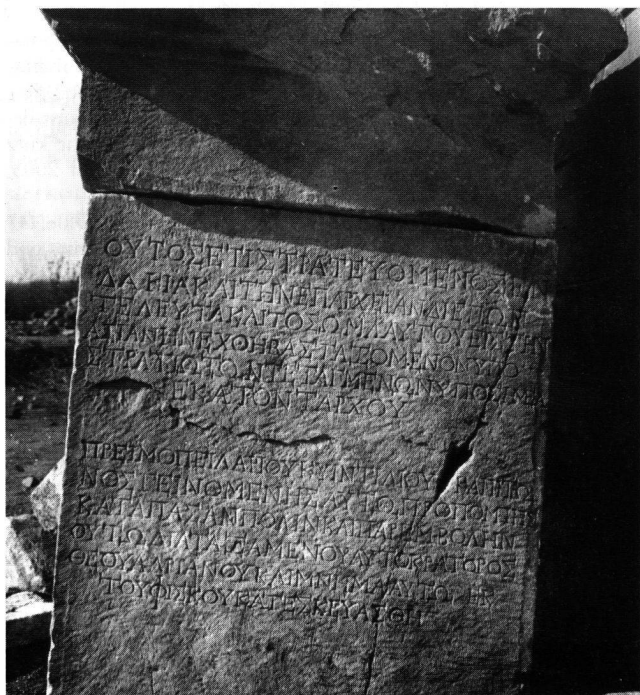 ΟΥΤΟΣΕΤΙΣΤΡΑΤΕΥΟΜΕΝΟΣΕΝ
ΔΑΚΙΑΚΑΙΤΗΝΕΠΑΡΧΕΙΑΝΔΙΕΠΩΝ
ΤΕΛΕΥΤΑΚΑΙΤΟΣΩΜΑΑΥΤΟΥΕΙΣΤΗΝ
ΑΣΙΑΝΗΝΕΧΘΗΒΑΣΤΑΖΟΜΕΝΟΝΥΠΟ
ΣΤΡΑΤΙΩΤΩΝΤΕΤΑΓΜΕΝΩΝΥΠΟΣΗΜΕΑ
ΕΚΑΤΟΝΤΑΡΧΟΥ
ΠΡΕΙΜΟΠΕΙΛΑΡΙΟΥΚΥΙΝΤΙΛΙΟΥΚΑΠΙΤΩ
ΝΟΣΓΕΙΝΟΜΕΝΗΣΑΥΤΩΠΡΟΠΟΜΠΗΣ
ΚΑΤΑΠΑΣΑΝΠΟΛΙΝΚΑΙΠΑΡΕΜΒΟΛΗΝ
ΟΥΤΩΔΙΑΤΑΞΑΜΕΝΟΥΑΥΤΟΚΡΑΤΟΡΟΣ
ΘΕΟΥΑΔΡΙΑΝΟΥΚΑΙΜΝΗΜΑΑΥΤΩΕΚ
ΤΟΥΦΙΣΚΟΥΚΑΤΕΣΚΕΥΑΣΘΗ